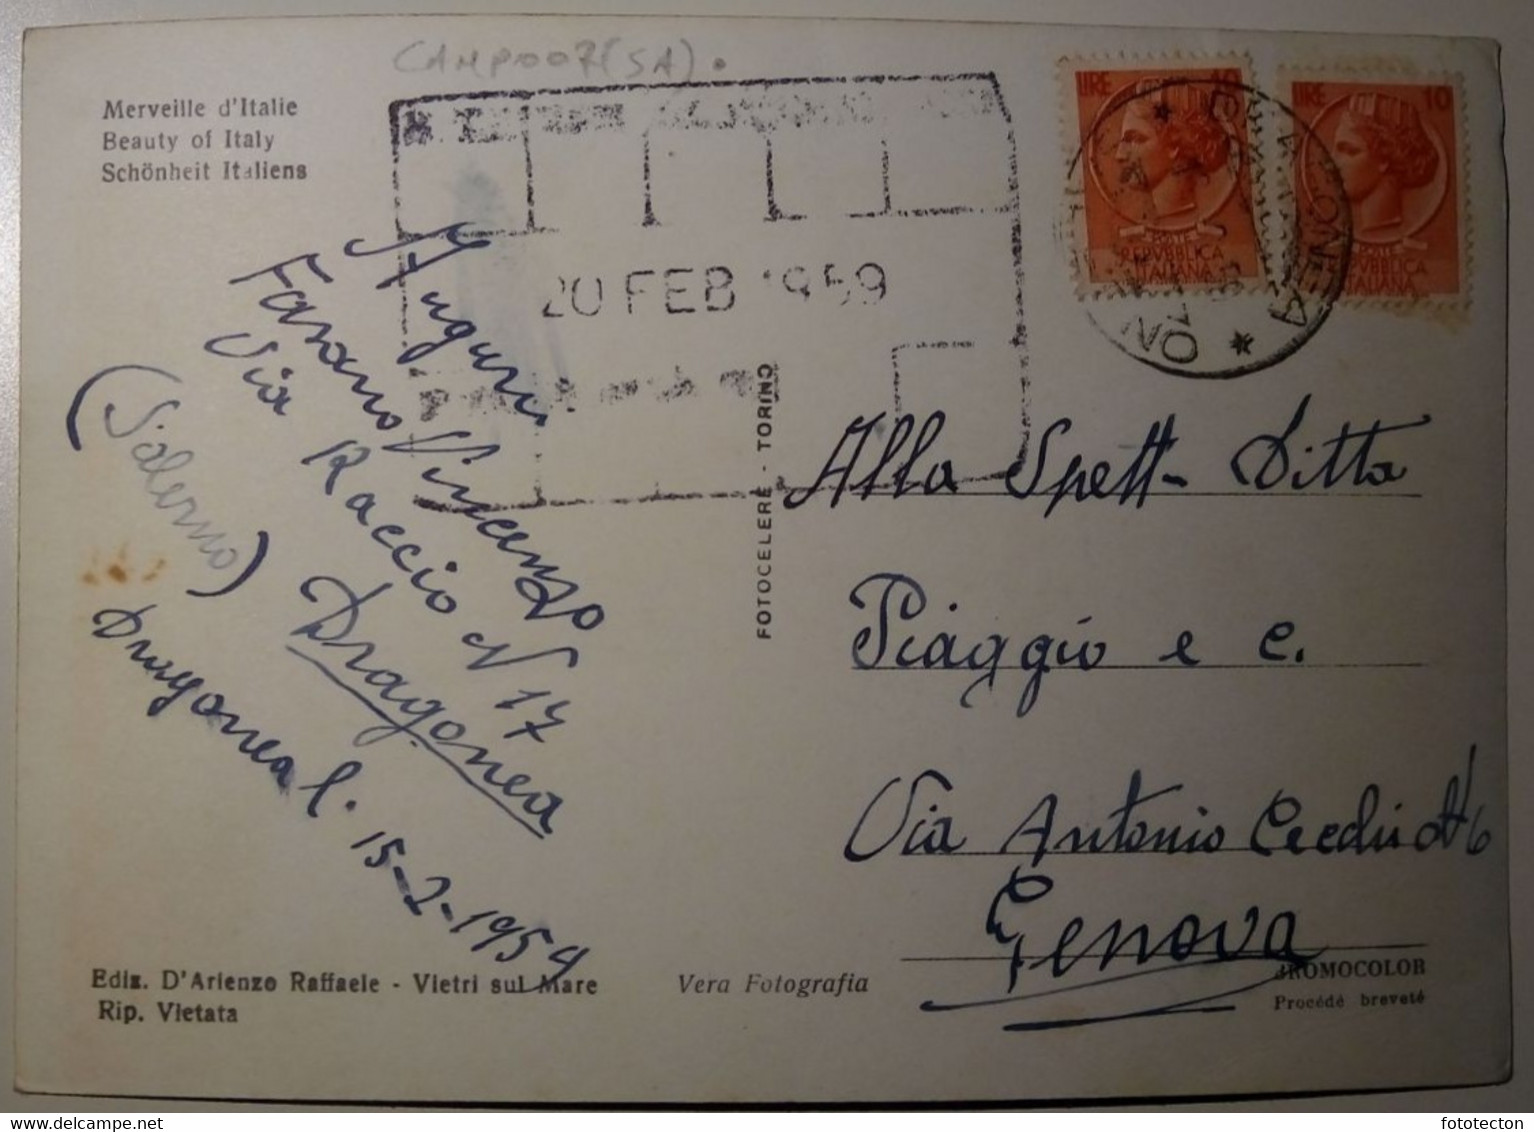 CAMPIOO7(SA).
Merveille d'Italie
Beauty of Italy
Schönheit Italiens
20 FEB 1959
LIRE 10
POSTE
REPVBBLICA
ITALIANA
LIRE 10
POSTE
REPVBBLICA
ITALIANA
Auguri
Farano Vincenzo
Via Raccio N 17
Dragonea
(Salerno)
Dragonea l. 15-2-1959
FOTOCELERE - TORINO
Alla Spett- Ditta
Piaggio e C.
Via Antonio Cecchi N 6
Genova
Ediz. D'Arienzo Raffaele - Vietri sul Mare
Rip. Vietata
Vera Fotografia
BROMOCOLOR
Procédé breveté
www.delcampe.net
fototecton